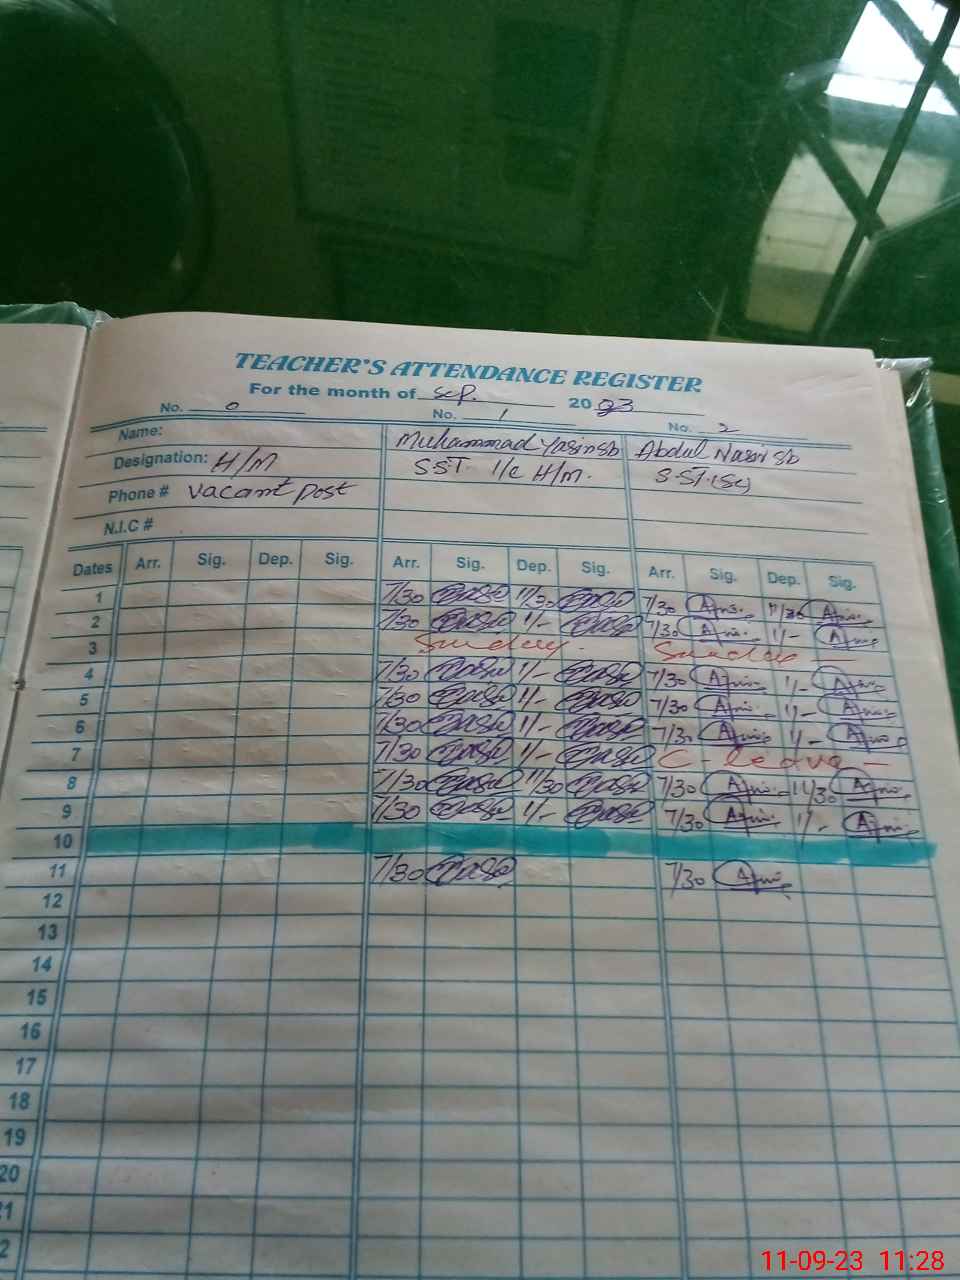 TEACHER'S ATTENDANCE REGISTER
For the month of Sep. 2023
No. 0 No. 1 No. 2
Name: Muhammad Yasin sb Abdul Nasir sb
Designation: H/M S.S.T. I/C H/M. S.ST.(Sc)
Phone # vacant post
N.I.C #
Dates Arr. Sig. Dep. Sig. Arr. Sig. Dep. Sig. Arr. Sig. Dep. Sig.
1 7/30 11/30 7/30 11/30
2 7/30 11/- 7/30 11/-
3 Sunday. Sunday
4 7/30 11/- 7/30 11/-
5 7/30 11/- 7/30 11/-
6 7/30 11/- 7/30 11/-
7 7/30 11/- C - leave -
8 7/30 11/30 7/30 11/30
9 7/30 11/- 7/30 11/-
10
11 7/30 7/30
12
13
14
15
16
17
18
19
20
21
2
11-09-23 11:28